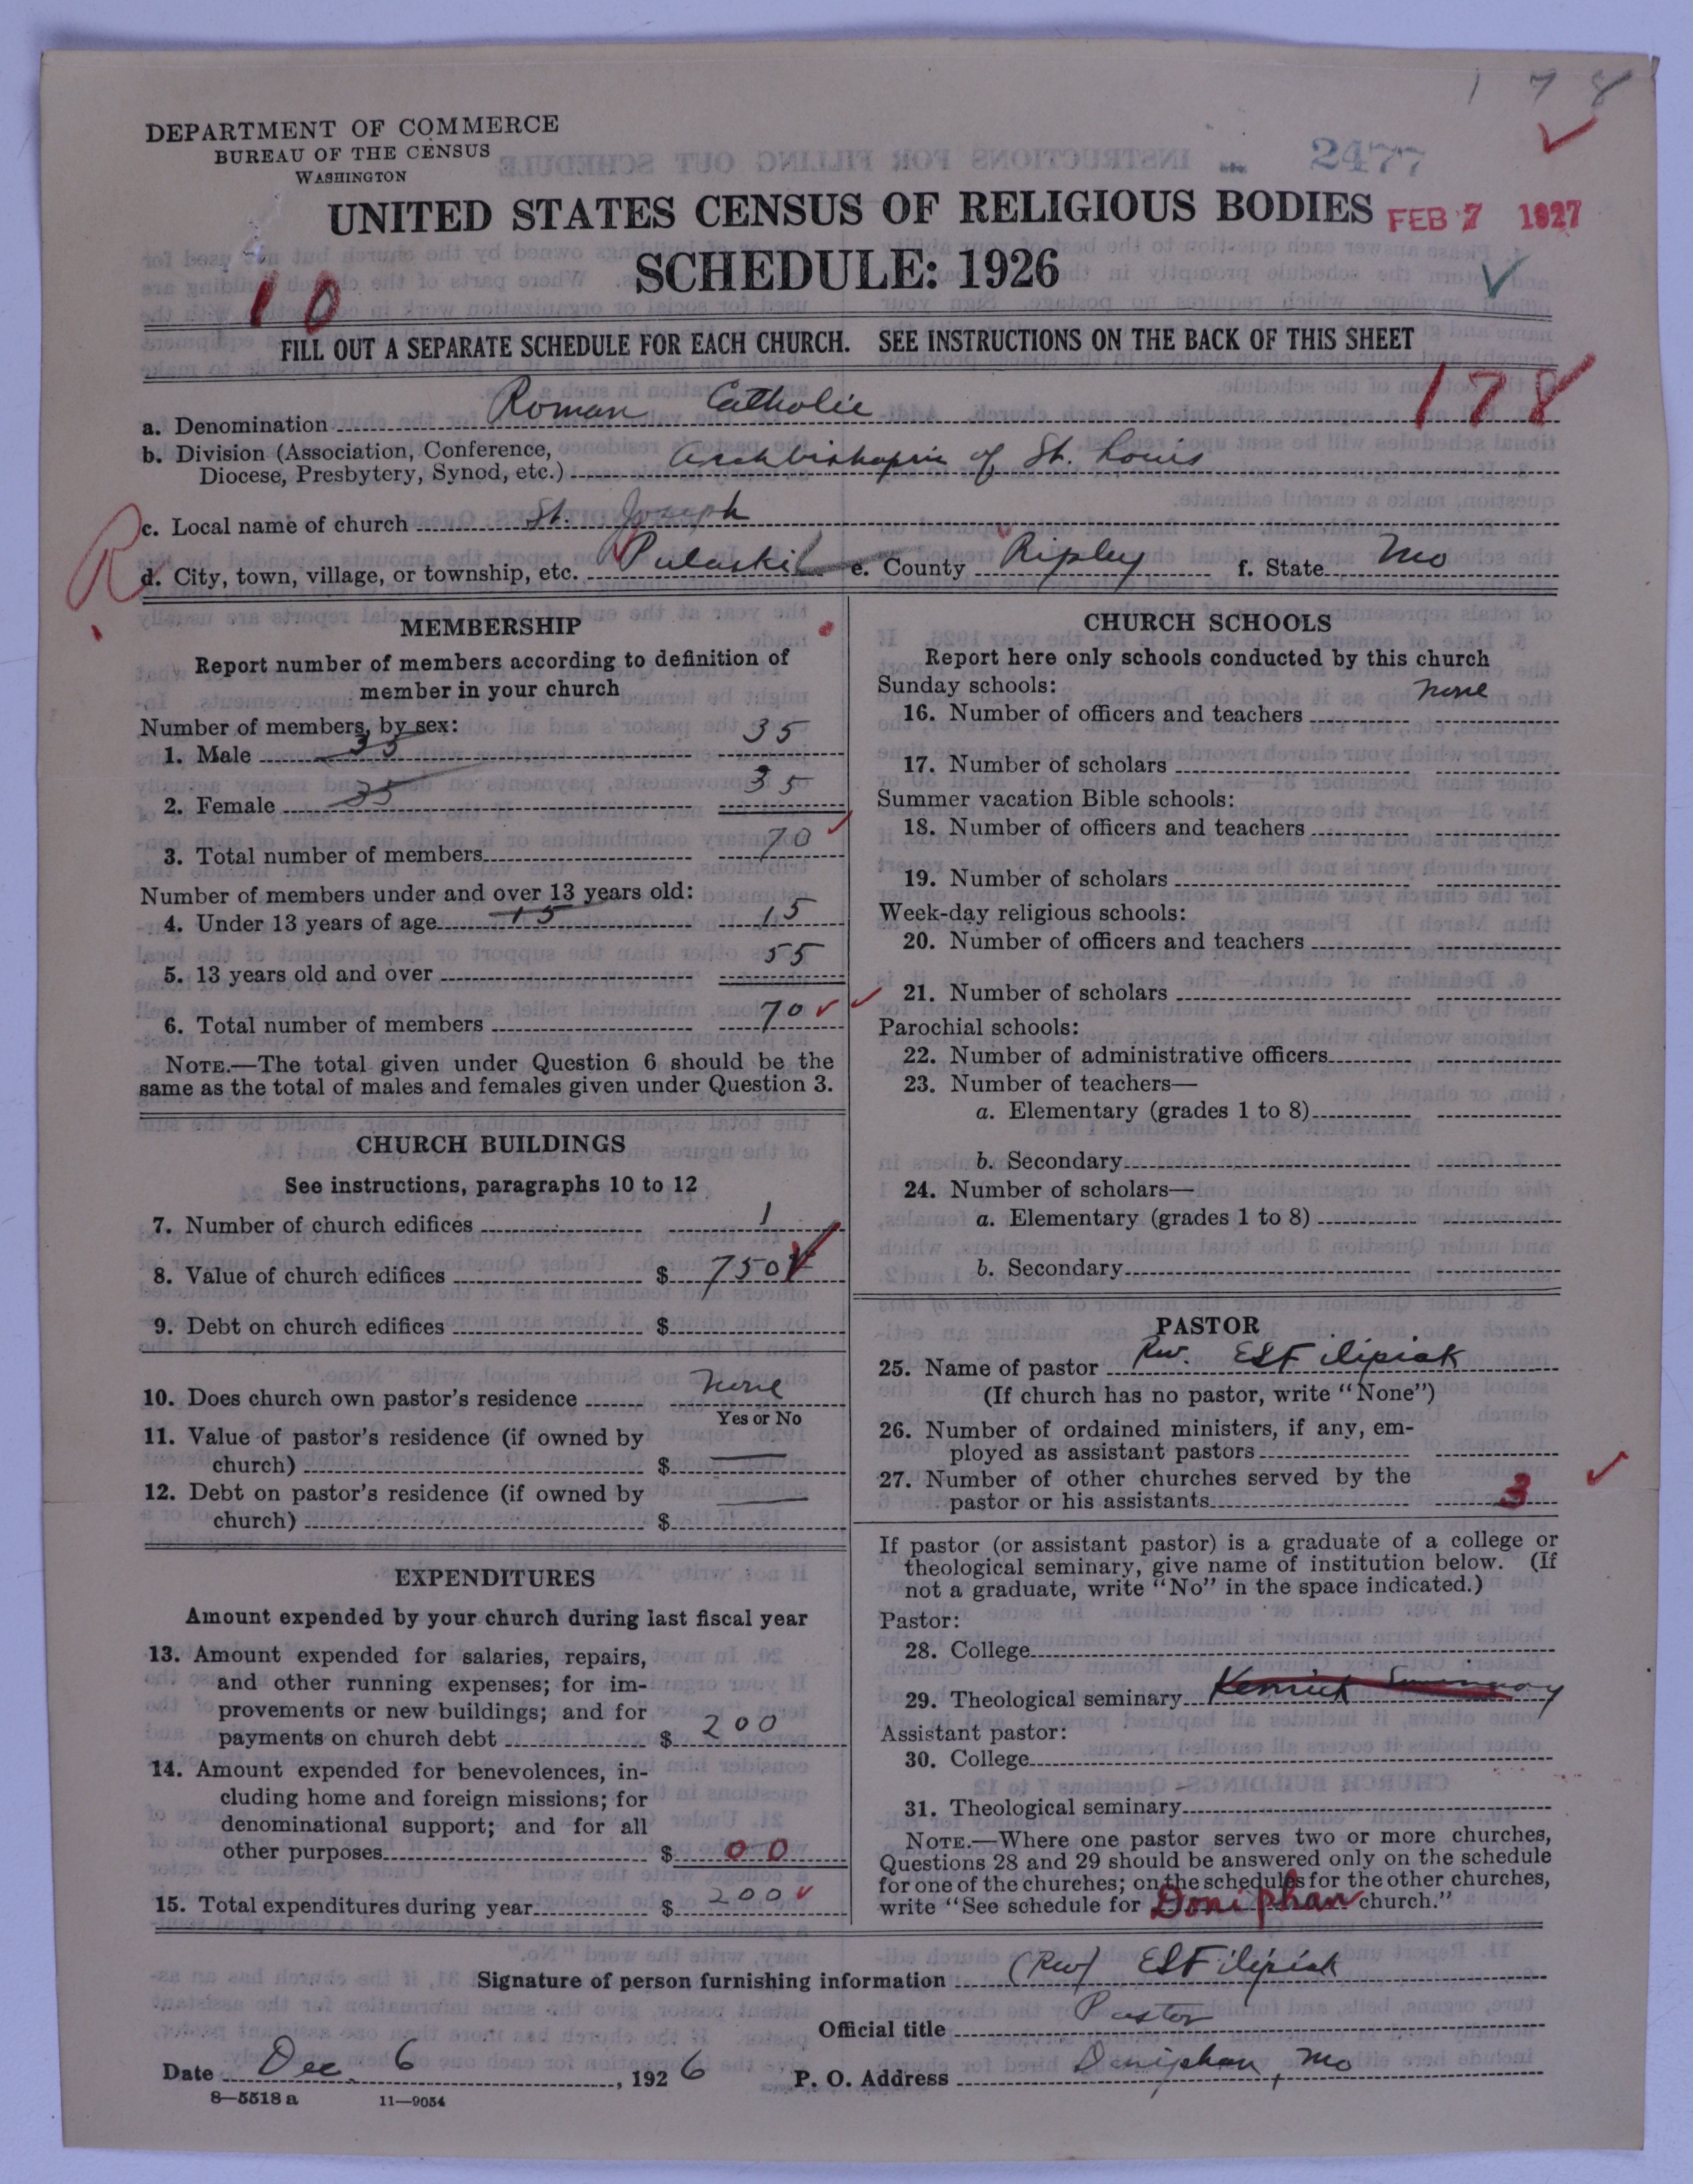 1 7 8
DEPARTMENT OF COMMERCE
BUREAU OF THE CENSUS
WASHINGTON
2477
UNITED STATES CENSUS OF RELIGIOUS BODIES
FEB 7 1927
SCHEDULE: 1926
10
FILL OUT A SEPARATE SCHEDULE FOR EACH CHURCH. SEE INSTRUCTIONS ON THE BACK OF THIS SHEET
178
a. Denomination Roman Catholic
b. Division (Association, Conference,
Diocese, Presbytery, Synod, etc.) of St. Louis
c. Local name of church St. Joseph
R
d. City, town, village, or township, etc. Pulaski e. County Ripley f. State Mo
MEMBERSHIP
Report number of members according to definition of
member in your church
Number of members, by sex:
1. Male 35 35
2. Female 35 35
3. Total number of members 70
Number of members under and over 13 years old:
4. Under 13 years of age 15 15
5. 13 years old and over 55
6. Total number of members 70
NOTE.—The total given under Question 6 should be the
same as the total of males and females given under Question 3.
CHURCH BUILDINGS
See instructions, paragraphs 10 to 12
7. Number of church edifices 1
8. Value of church edifices $ 750
9. Debt on church edifices $
10. Does church own pastor's residence None
Yes or No
11. Value of pastor's residence (if owned by
church) $ —
12. Debt on pastor's residence (if owned by
church) $ —
EXPENDITURES
Amount expended by your church during last fiscal year
13. Amount expended for salaries, repairs,
and other running expenses; for im-
provements or new buildings; and for
payments on church debt $ 200
14. Amount expended for benevolences, in-
cluding home and foreign missions; for
denominational support; and for all
other purposes $ 00
15. Total expenditures during year $ 200
CHURCH SCHOOLS
Report here only schools conducted by this church
Sunday schools:
16. Number of officers and teachers None
17. Number of scholars
Summer vacation Bible schools:
18. Number of officers and teachers
19. Number of scholars
Week-day religious schools:
20. Number of officers and teachers
21. Number of scholars
Parochial schools:
22. Number of administrative officers
23. Number of teachers—
a. Elementary (grades 1 to 8)
b. Secondary
24. Number of scholars—
a. Elementary (grades 1 to 8)
b. Secondary
PASTOR
25. Name of pastor Rev. ESFilipiak
(If church has no pastor, write "None")
26. Number of ordained ministers, if any, em-
ployed as assistant pastors
27. Number of other churches served by the
pastor or his assistants 3
If pastor (or assistant pastor) is a graduate of a college or
theological seminary, give name of institution below. (If
not a graduate, write "No" in the space indicated.)
Pastor:
28. College
29. Theological seminary Kenrick Seminary
Assistant pastor:
30. College
31. Theological seminary
NOTE.—Where one pastor serves two or more churches,
Questions 28 and 29 should be answered only on the schedule
for one of the churches; on the schedules for the other churches,
write "See schedule for Doniphan church."
Signature of person furnishing information (Rev) ESFilipiak
Official title Pastor
Date Dec 6, 1926 P. O. Address Doniphan, Mo
8—5518 a 11—9054